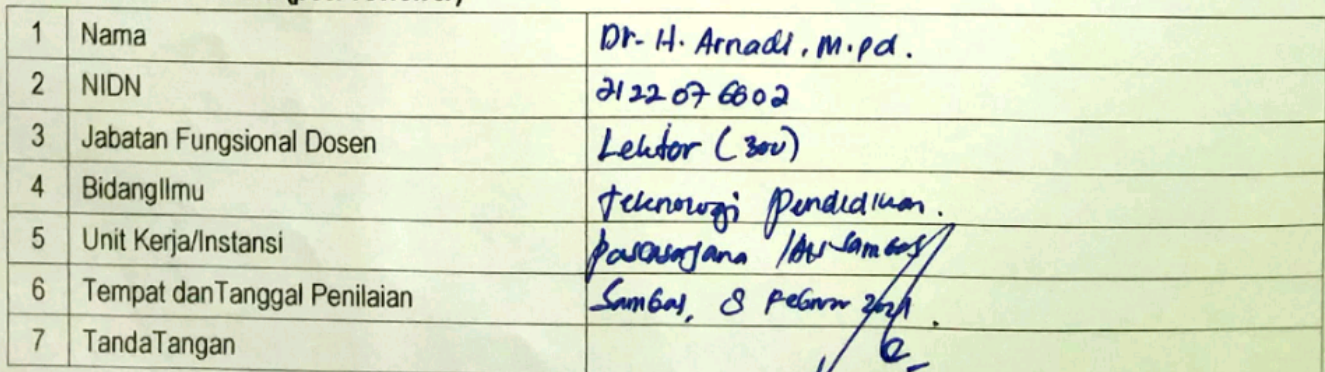 1 Nama Dr. H. Arnadi, M.pd.
2 NIDN 2122076602
3 Jabatan Fungsional Dosen Lektor (300)
4 BidangIlmu Teknologi Pendidikan.
5 Unit Kerja/Instansi Pascasarjana IAIS Sambas
6 Tempat danTanggal Penilaian Sambas, 8 Februari 2021.
7 TandaTangan